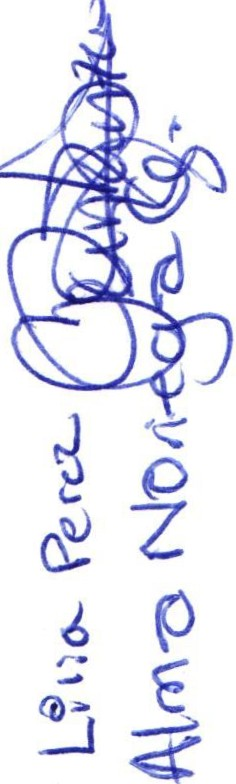 Lina Perez
Alma Noriega